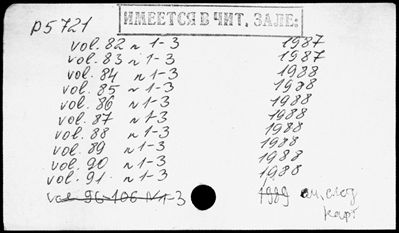 p5721
ИМЕЕТСЯ В ЧИТ. ЗАЛЕ:
vol. 82 n 1-3 1987
vol. 83 n 1-3 1987
vol. 84 n 1-3 1988
vol. 85 n 1-3 1988
vol. 86 n 1-3 1988
vol. 87 n 1-3 1988
vol. 88 n 1-3 1988
vol. 89 n 1-3 1988
vol. 90 n 1-3 1988
vol. 91 n 1-3 1988
vol. 96-106 N 1-3 1989 см. след
карт